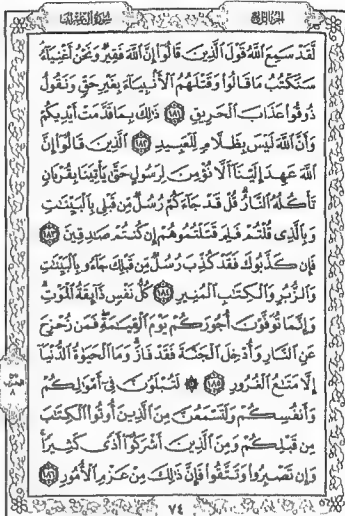 الجزء الرابع
سورة آل عمران
لَّقَدْ سَمِعَ اللَّهُ قَوْلَ الَّذِينَ قَالُوا إِنَّ اللَّهَ فَقِيرٌ وَنَحْنُ أَغْنِيَاءُ
سَنَكْتُبُ مَا قَالُوا وَقَتْلَهُمُ الْأَنبِيَاءَ بِغَيْرِ حَقٍّ وَنَقُولُ
ذُوقُوا عَذَابَ الْحَرِيقِ ١٨١ ذَٰلِكَ بِمَا قَدَّمَتْ أَيْدِيكُمْ
وَأَنَّ اللَّهَ لَيْسَ بِظَلَّامٍ لِّلْعَبِيدِ ١٨٢ الَّذِينَ قَالُوا إِنَّ
اللَّهَ عَهِدَ إِلَيْنَا أَلَّا نُؤْمِنَ لِرَسُولٍ حَتَّىٰ يَأْتِيَنَا بِقُرْبَانٍ
تَأْكُلُهُ النَّارُ قُلْ قَدْ جَاءَكُمْ رُسُلٌ مِّن قَبْلِي بِالْبَيِّنَاتِ
وَبِالَّذِي قُلْتُمْ فَلِمَ قَتَلْتُمُوهُمْ إِن كُنتُمْ صَادِقِينَ ١٨٣
فَإِن كَذَّبُوكَ فَقَدْ كُذِّبَ رُسُلٌ مِّن قَبْلِكَ جَاءُو بِالْبَيِّنَاتِ
وَالزُّبُرِ وَالْكِتَابِ الْمُنِيرِ ١٨٤ كُلُّ نَفْسٍ ذَائِقَةُ الْمَوْتِ
وَإِنَّمَا تُوَفَّوْنَ أُجُورَكُمْ يَوْمَ الْقِيَامَةِ فَمَن زُحْزِحَ
عَنِ النَّارِ وَأُدْخِلَ الْجَنَّةَ فَقَدْ فَازَ وَمَا الْحَيَوٰةُ الدُّنْيَا
إِلَّا مَتَاعُ الْغُرُورِ ١٨٥ ۞ لَتُبْلَوُنَّ فِي أَمْوَالِكُمْ
وَأَنفُسِكُمْ وَلَتَسْمَعُنَّ مِنَ الَّذِينَ أُوتُوا الْكِتَابَ
مِن قَبْلِكُمْ وَمِنَ الَّذِينَ أَشْرَكُوا أَذًى كَثِيرًا
وَإِن تَصْبِرُوا وَتَتَّقُوا فَإِنَّ ذَٰلِكَ مِنْ عَزْمِ الْأُمُورِ ١٨٦
٧٤